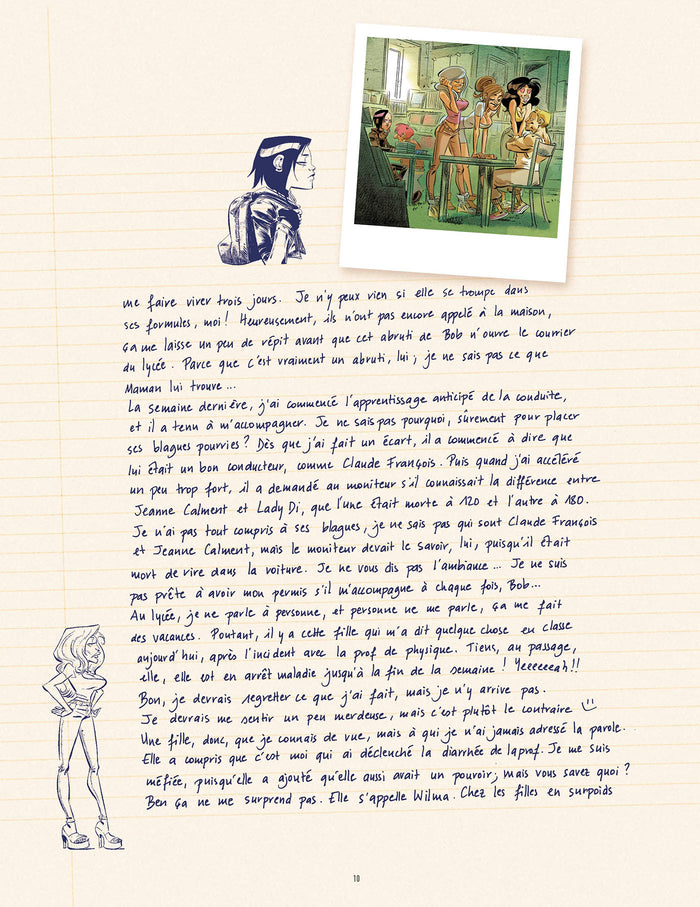 me faire virer trois jours. Je n'y peux rien si elle se trompe dans
ses formules, moi ! Heureusement, ils n'ont pas encore appelé à la maison,
ça me laisse un peu de répit avant que cet abruti de Bob n'ouvre le courrier
du lycée. Parce que c'est vraiment un abruti, lui ; je ne sais pas ce que
Maman lui trouve ...
La semaine dernière, j'ai commencé l'apprentissage anticipé de la conduite,
et il a tenu à m'accompagner. Je ne sais pas pourquoi, sûrement pour placer
ses blagues pourries ? Dès que j'ai fait un écart, il a commencé à dire que
lui était un bon conducteur, comme Claude François. Puis quand j'ai accéléré
un peu trop fort, il a demandé au moniteur s'il connaissait la différence entre
Jeanne Calment et Lady Di, que l'une était morte à 120 et l'autre à 180.
Je n'ai pas tout compris à ses blagues, je ne sais pas qui sont Claude François
et Jeanne Calment, mais le moniteur devait le savoir, lui, puisqu'il était
mort de rire dans la voiture. Je ne vous dis pas l'ambiance ... Je ne suis
pas prête à avoir mon permis s'il m'accompagne à chaque fois, Bob...
Au lycée, je ne parle à personne, et personne ne me parle, ça me fait
des vacances. Poutant, il y a cette fille qui m'a dit quelque chose en classe
aujourd'hui, après l'incident avec la prof de physique. Tiens, au passage,
elle, elle est en arrêt maladie jusqu'à la fin de la semaine ! Yeeeeeeah !!
Bon, je devrais regretter ce que j'ai fait, mais je n'y arrive pas.
Je devrais me sentir un peu merdeuse, mais c'est plutôt le contraire
Une fille, donc, que je connais de vue, mais à qui je n'ai jamais adressé la parole.
Elle a compris que c'est moi qui ai déclenché la diarrhée de la prof. Je me suis
méfiée, puisqu'elle a ajouté qu'elle aussi avait un pouvoir, mais vous savez quoi ?
Ben ça ne me surprend pas. Elle s'appelle Wilma. Chez les filles en surpoids
10